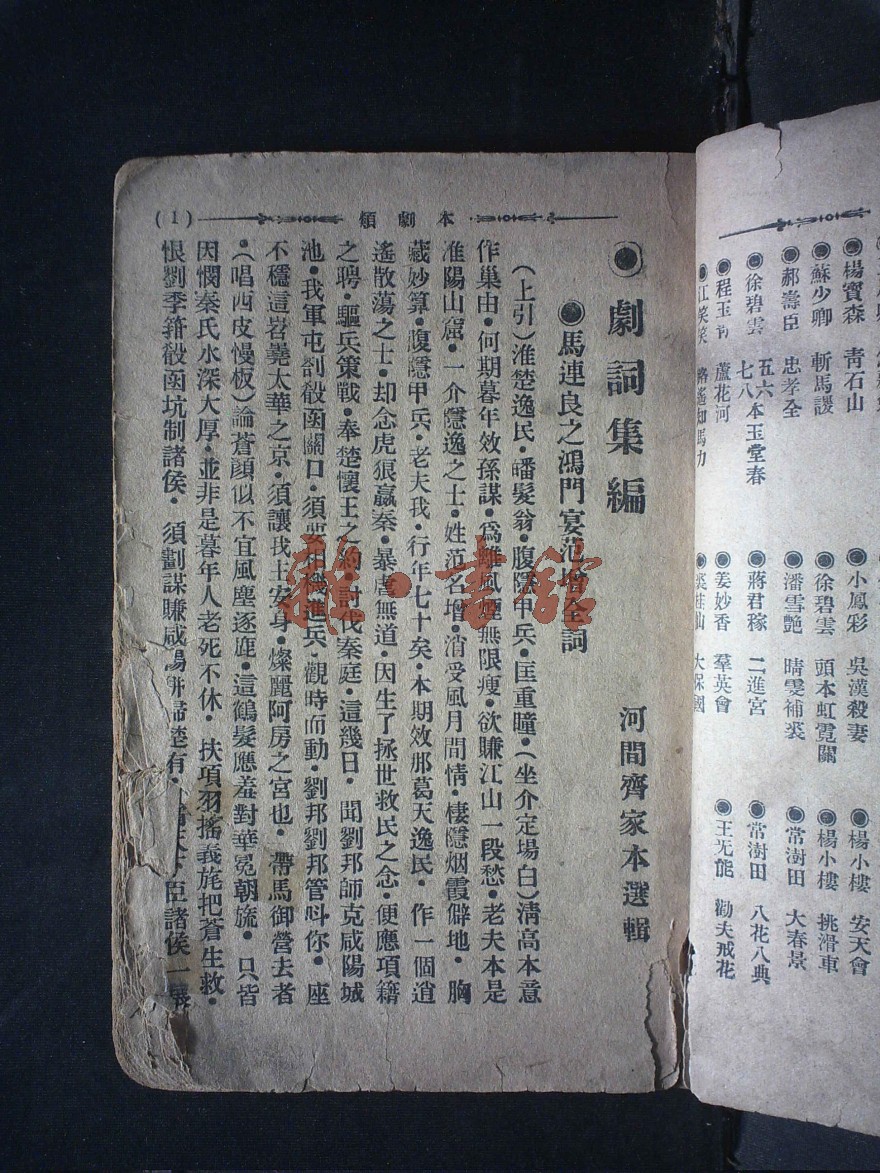 本劇類
(1)
◉劇詞集編
河間齊家本選輯
◉馬連良之鴻門宴范增全詞
(上引)淮楚逸民·皤髮翁·腹隱甲兵·匡重瞳·(坐介定場白)淸高本意
作巢由·何期暮年效孫謀·爲離風煙無限瘦·欲賺江山一段愁·老夫本是
淮陽山窟·一介隱逸之士·姓范名增·消受風月間情·棲隱烟霞僻地·胸
藏妙算·腹隱甲兵·老夫我·行年七十矣·本期效那葛天逸民·作一個逍
遙散蕩之士·却念虎狠嬴秦·暴虐無道·因生了拯世救民之念·便應項籍
之聘·驅兵策戰·奉楚懷王之約·討伐秦庭·這幾日·聞劉邦師克咸陽城
池·我軍屯剳殽函關口·須要相機進兵·觀時而動·劉邦劉邦管呌你·座
不穩這岧嶤太華之京·須讓我主安身·燦麗阿房之宮也·帶馬御營去者
·(唱西皮慢板)論蒼顏似不宜風塵逐鹿·這鶴髮應羞對華冕朝旒·只皆
因憫秦氏水深大厚·並非是暮年人老死不休·扶項羽搖義旄把蒼生救·
恨劉季籍殽函坑制諸侯·須劃謀賺咸陽 歸楚有· 臣諸侯一
楊寶森 靑石山
蘇少卿 斬馬謖
郝壽臣 忠孝全
徐碧雲 五六七八本玉堂春
程玉 蘆花河
江笑笑 路遙知馬力
小鳳彩 吳漢殺妻
徐碧雲 頭本虹霓關
潘雪艶 晴雯補裘
蔣君稼 二進宮
姜妙香 羣英會
裘桂仙 大保國
楊小樓 安天會
楊小樓 挑滑車
常澍田 大春景
常澍田 八花八典
王无能 勸夫戒花
雜·書館